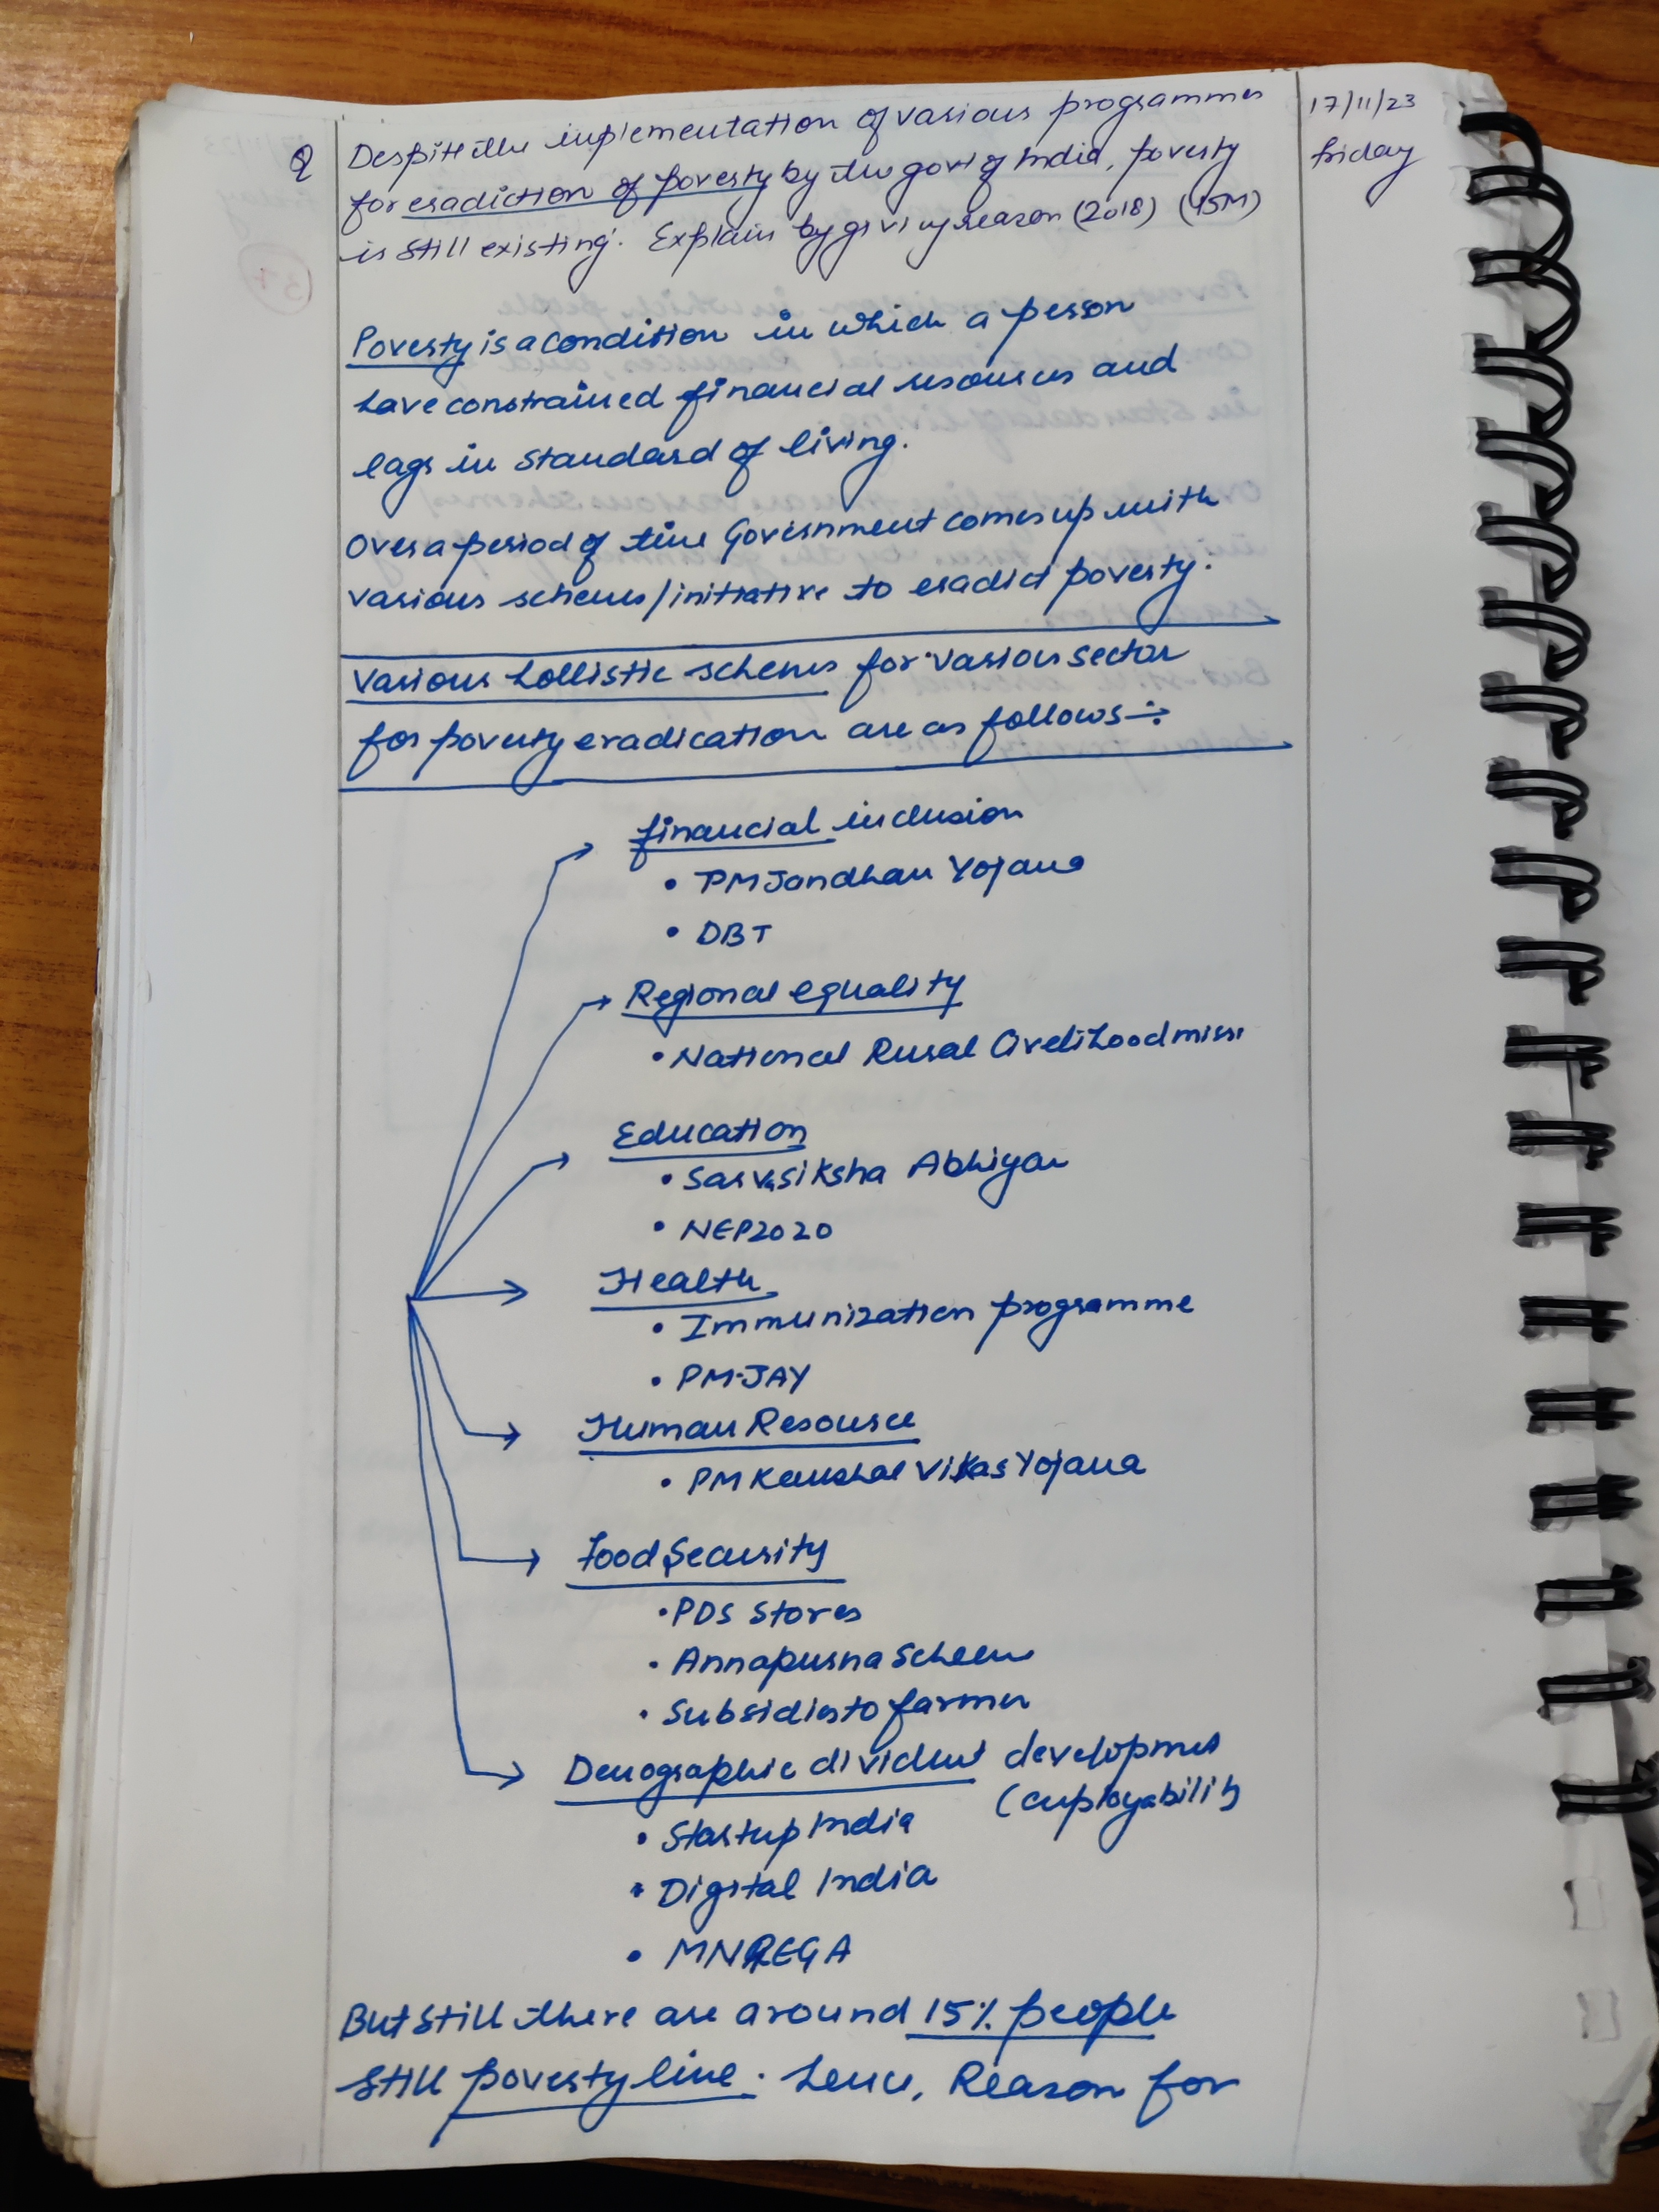 17/11/23
friday
Q Despite the implementation of various programmes
for eradiction of poverty by the govt of India, poverty
is still existing. Explain by giving reason (2018) (15M)
Poverty is a condition in which a person
have constrained financial resources and
lags in standard of living.
Over a period of time Government comes up with
various schemes/initiative to eradict poverty.
Various hollistic schemes for various sector
for poverty eradication are as follows:-
financial inclusion
• PM Jandhan Yojana
• DBT
Regional equality
• National Rural livelihood missi
Education
• Sarva Siksha Abhiyan
• NEP 2020
Health
• Immunization programme
• PM-JAY
Human Resource
• PM Kaushal Vikas Yojana
Food Security
• PDS stores
• Annapurna Scheme
• Subsidies to farmer
Demographic divident development
(employability
• Startup India
• Digital India
• MNREGA
But still there are around 15% people
still poverty line. hence, Reason for